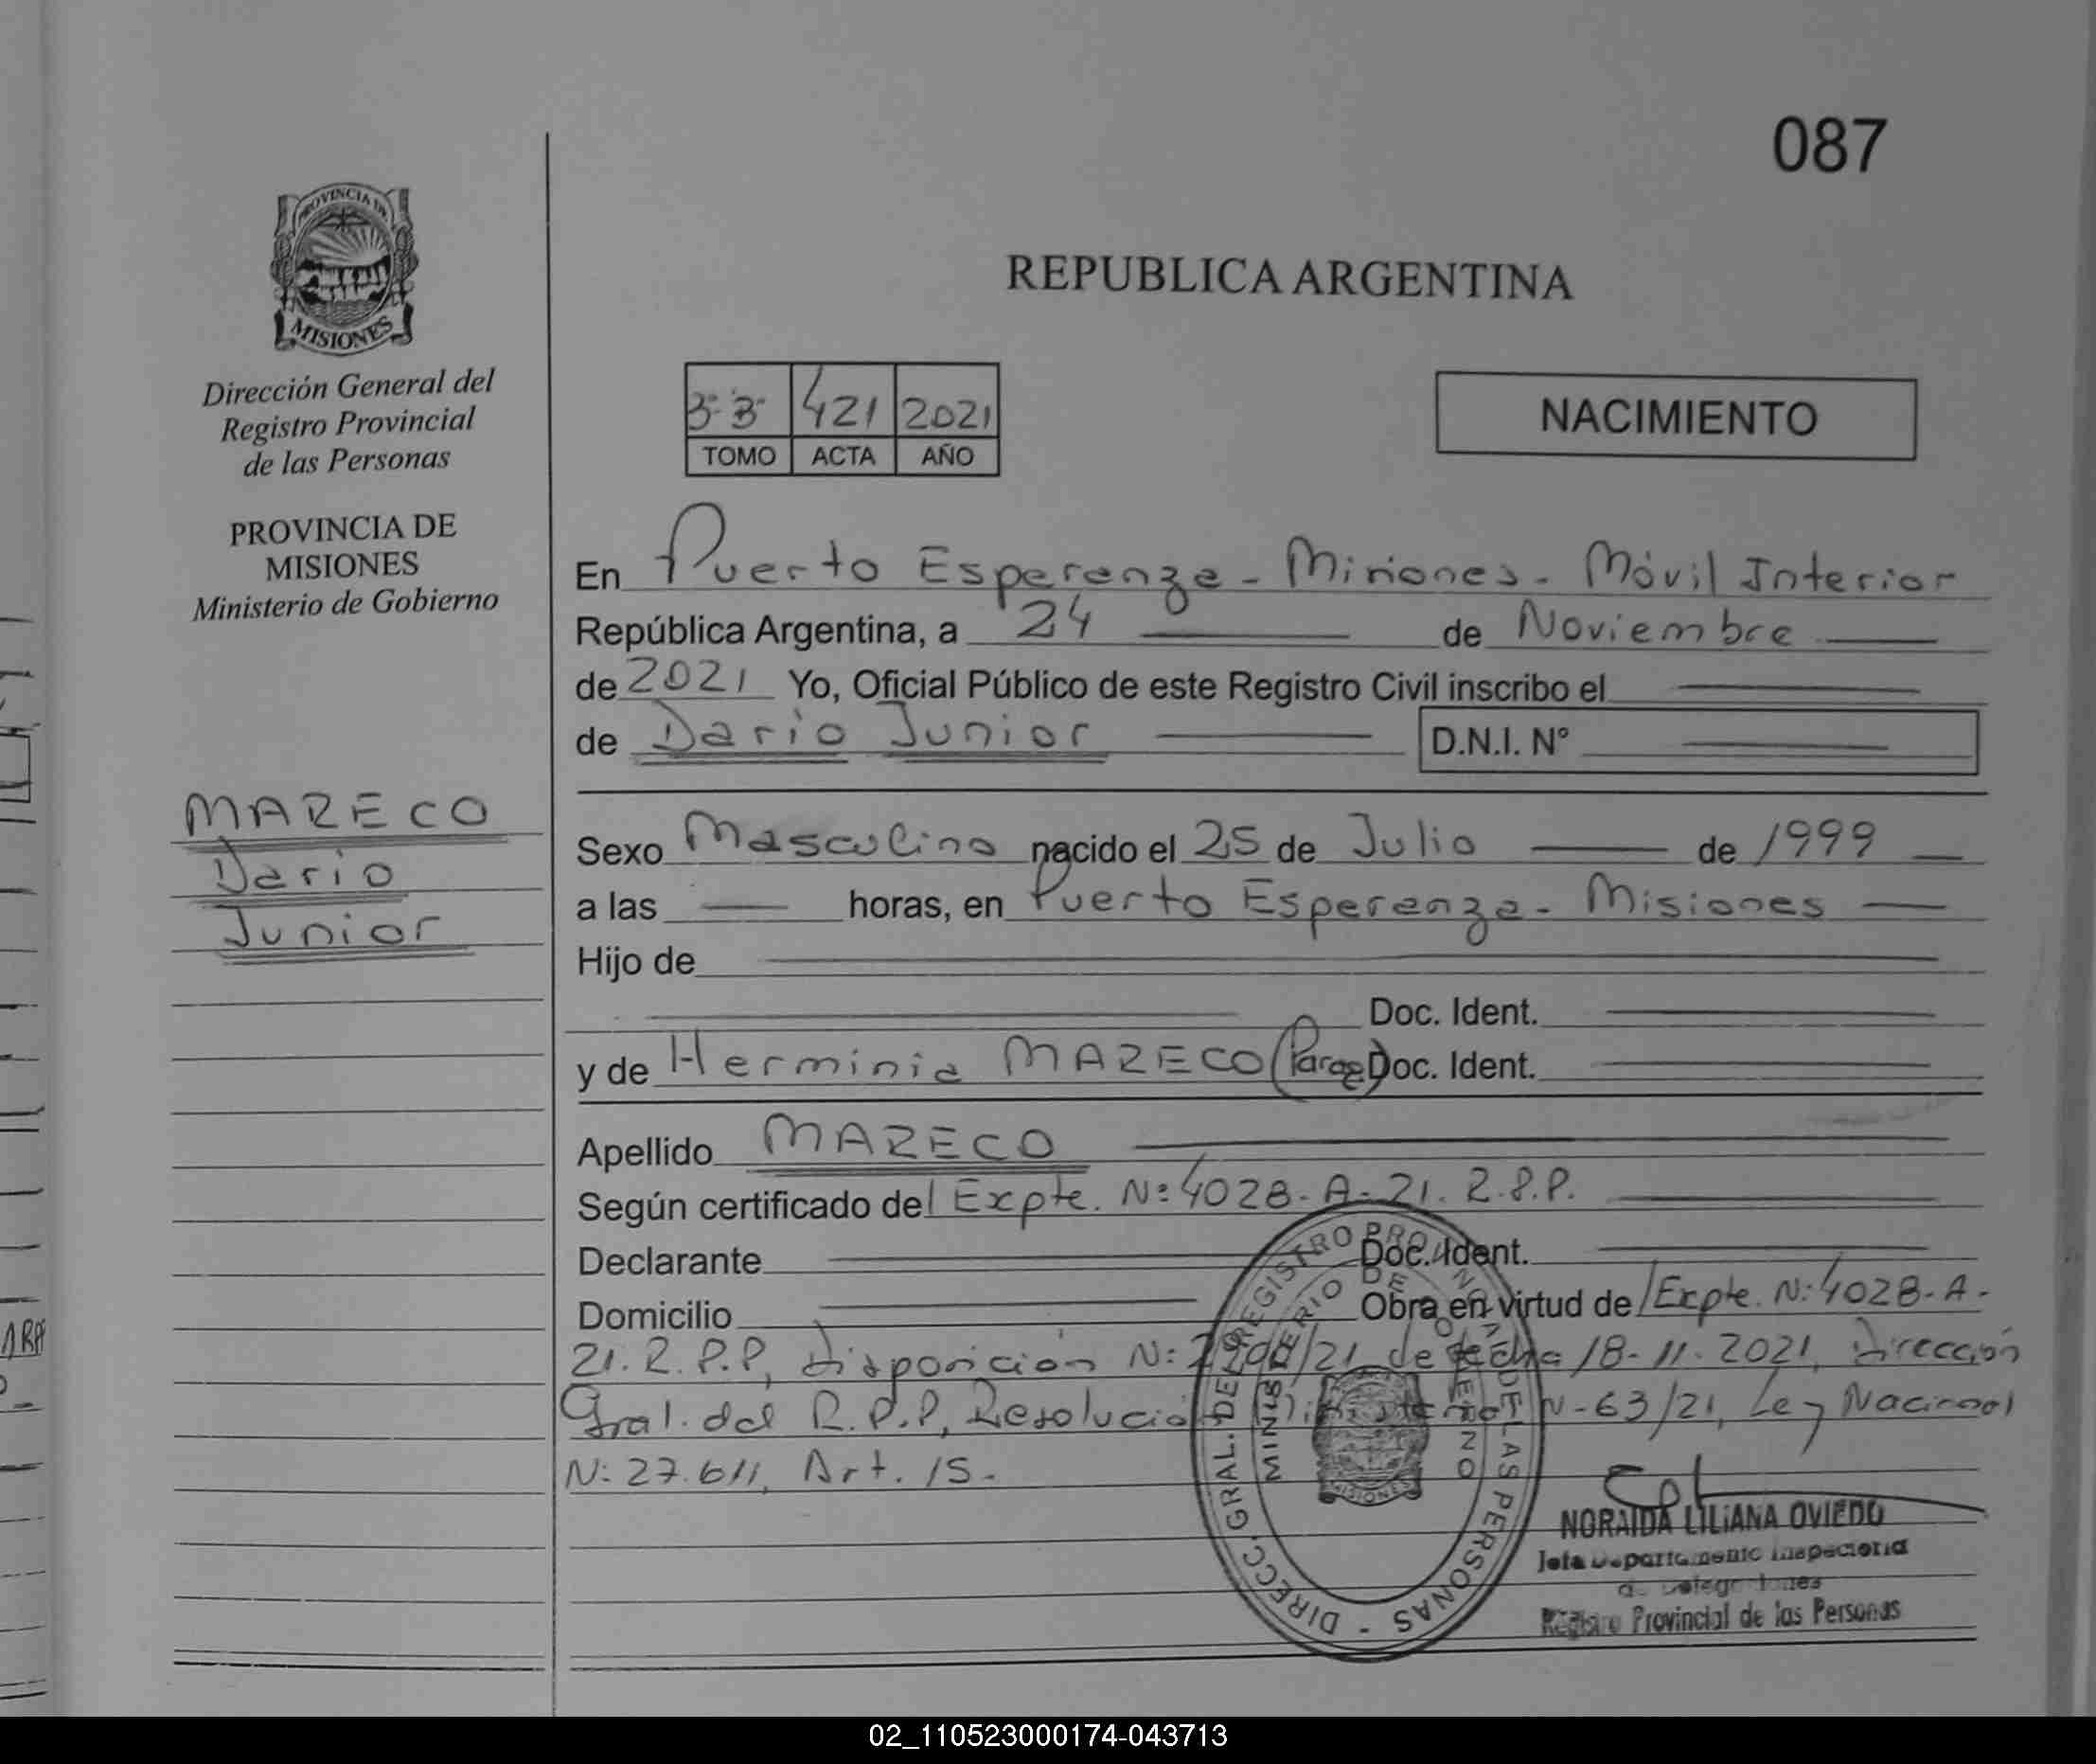 087
PROVINCIA DE
MISIONES
REPUBLICA ARGENTINA
Dirección General del
Registro Provincial
de las Personas
PROVINCIA DE
MISIONES
Ministerio de Gobierno
421 2021
TOMO ACTA AÑO
NACIMIENTO
En Puerto Esperanza - Misiones - Móvil Interior
República Argentina, a 24 de Noviembre
de 2021 Yo, Oficial Público de este Registro Civil inscribo el
de Dario Junior D.N.I. N°
MARECO
Dario
Junior
Sexo Masculino nacido el 25 de Julio de 1999
a las horas, en Puerto Esperanza - Misiones
Hijo de
Doc. Ident.
y de Herminia MARECO Doc. Ident.
Apellido MARECO
Según certificado del Expte. Nº 4028-A-21. R.P.P.
Declarante Doc. Ident.
Domicilio Obra en virtud de Expte. Nº 4028-A-
21. R.P.P, Disposición Nº /21 de fecha 18-11-2021, Dirección
Gral. del R.P.P, Resolución N-63/21, Ley Nacional
Nº 27.611, Art. 15-
DIRECC. GRAL. DEL REGISTRO DE LAS PERSONAS
MINISTERIO DE GOBIERNO
MISIONES
NORAIDA LILIANA OVIEDO
Jefa Departamento Inspectoria
Registro Provincial de las Personas
02_110523000174-043713